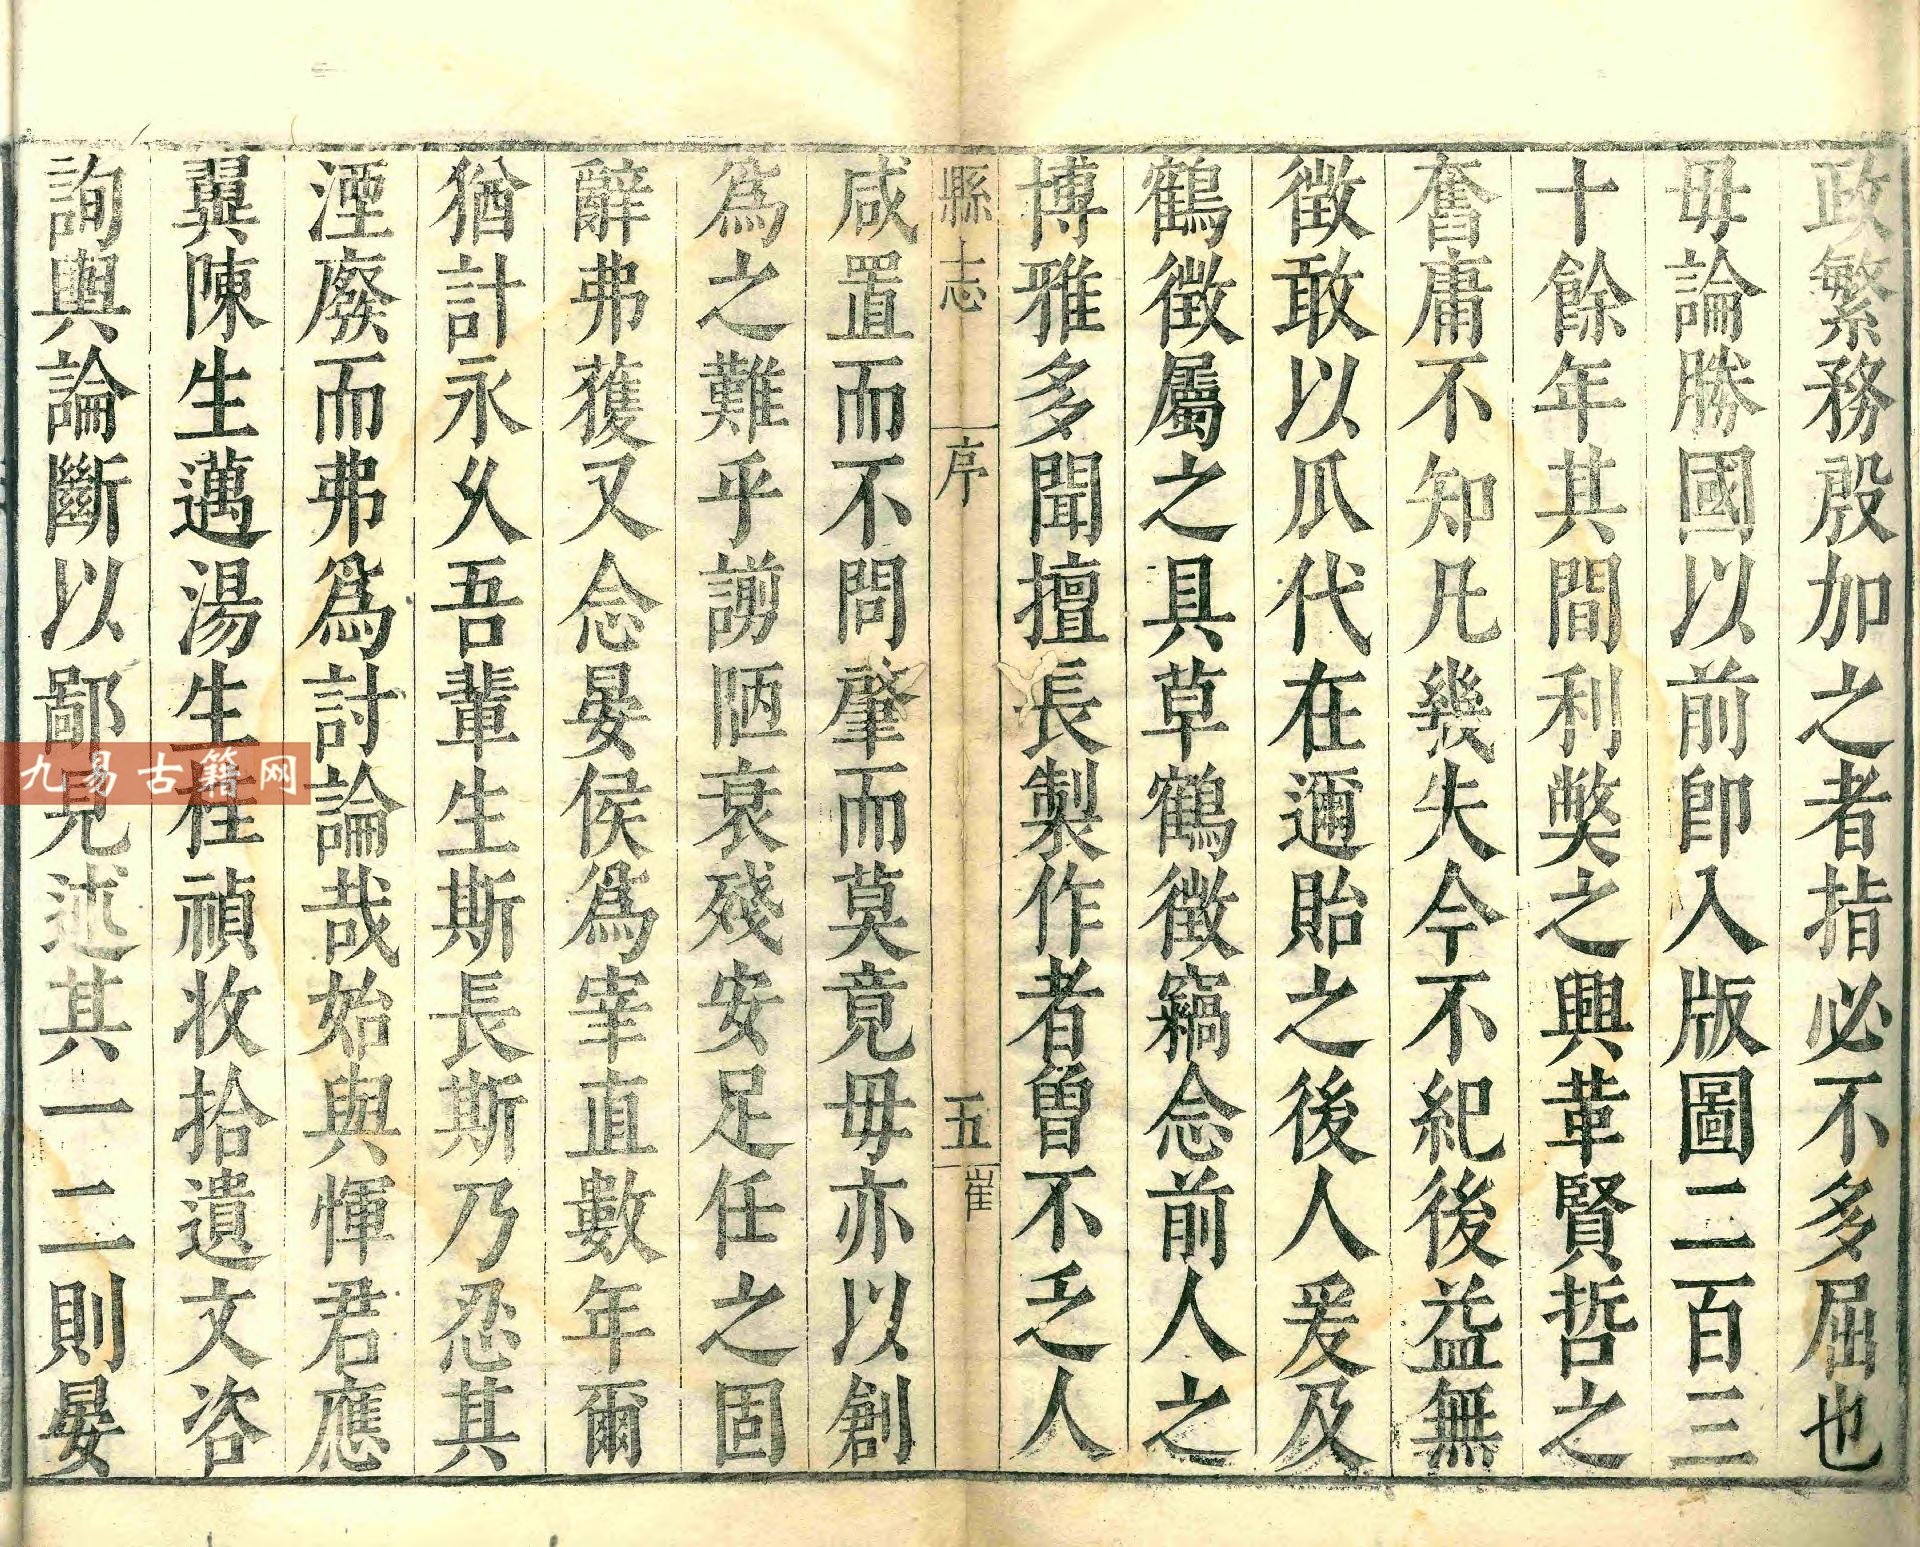 政繁務殷加之者指必不多屈也
毋論勝國以前卽入版圖二百三
十餘年其間利獘之興革賢哲之
奮庸不知凡幾失今不紀後益無
徵敢以瓜代在邇貽之後人爰及
鶴徵屬之具草鶴徵竊念前人之
博雅多聞擅長製作者曾不乏人
縣志 序 五 崔
咸置而不問肇而莫竟毋亦以創
爲之難乎謭陋衰殘安足任之固
辭弗獲又念晏侯爲宰直數年爾
猶計永久吾輩生斯長斯乃忍其
湮廢而弗爲討論哉始與惲君應
翼陳生邁湯生生桂禎收拾遺文咨
詢輿論斷以鄙見述其一二則晏
九易古籍网